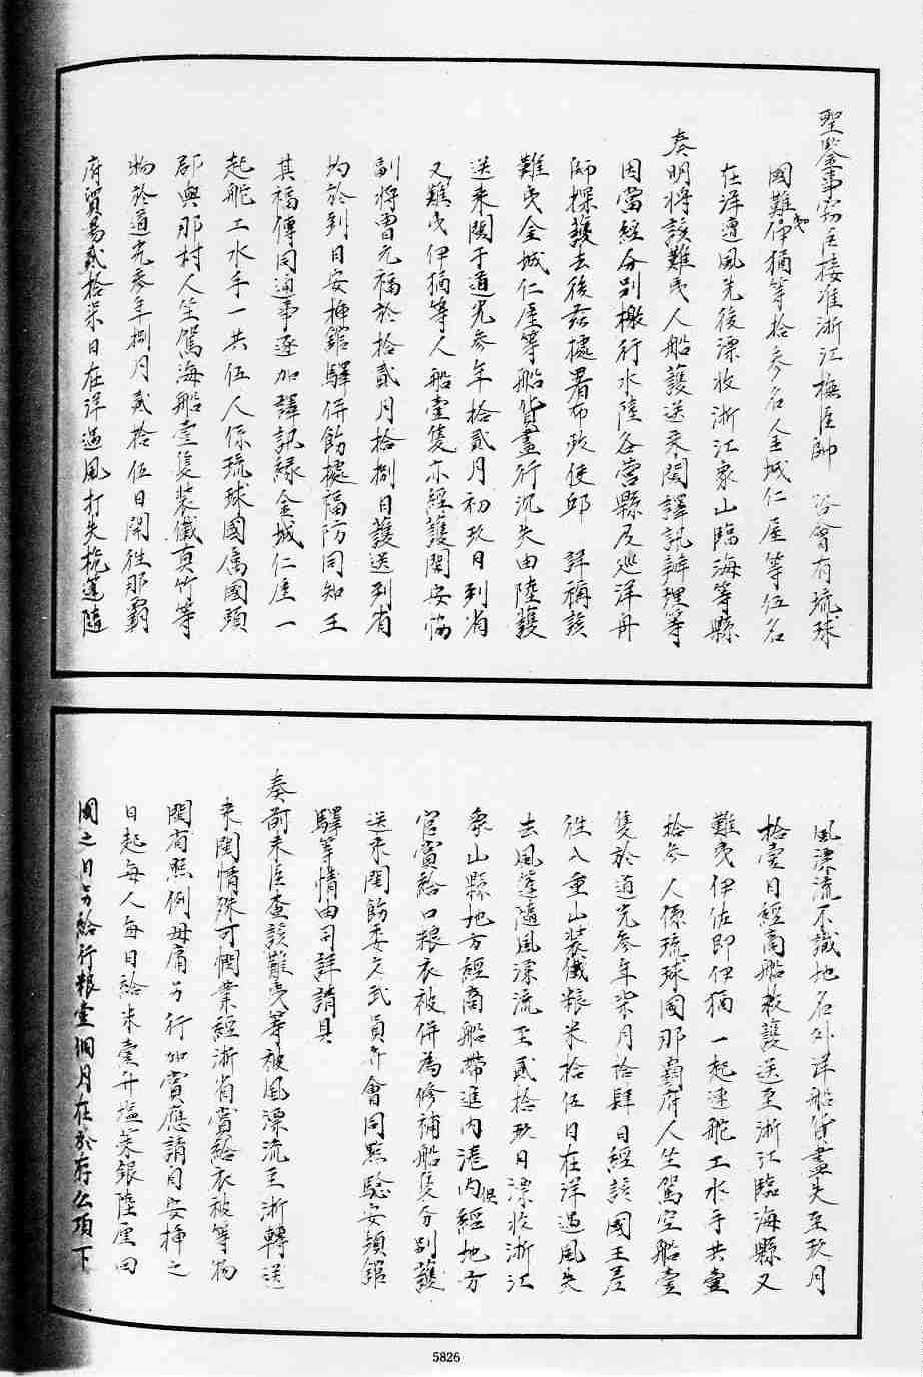 聖鑒事窃臣接准浙江撫臣帥 咨會有琉球
國難夷伊猶等拾參名金城仁屋等伍名
在洋遭風先後漂收浙江象山臨海等縣
奏明將該難夷人船護送來閩譯訊辦理等
因當經分別檄行水陸各營縣及巡洋舟
師探護去後茲據署布政使邱 詳稱該
難夷金城仁屋等船貨盡行沉失由陸護
送來閩于道光參年拾貳月初玖日到省
又難夷伊猶等人船壹隻亦經護閩安協
副將曹元福於拾貳月拾捌日護送到省
均於到日安挿館驛併飭據福防同知王
其福傳同通事逐加譯訊緣金城仁屋一
起舵工水手一共伍人係琉球國屬國頭
郡與那村人坐駕海船壹隻裝儎真竹等
物於道光參年捌月貳拾伍日開徃那霸
府貿易貳拾柒日在洋遇風打失桅蓬隨
風漂流不識地名外洋船貨盡失至玖月
拾壹日經商船救護送至浙江臨海縣又
難夷伊佐即伊猶一起連舵工水手共壹
拾參人係琉球國那霸府人坐駕空船壹
隻於道光參年柒月拾肆日經該國王差
徃八重山裝儎粮米拾伍日在洋遇風失
去風篷隨風漂流至貳拾玖日漂收浙江
象山縣地方經商船帶進內港內俱經地方
官當給口粮衣被併為修補船隻分別護
送來閩飭委文武員弁會同點驗安頓館
驛等情由司詳請具
奏前來臣查該難夷等被風漂流至浙轉送
來閩情殊可憫業經浙省賞給衣被等物
閩省照例毋庸另行加賞應請自安挿之
日起每人每日給米壹升塩菜銀陸厘回
國之日另給行粮壹個月在於存公項下
5826